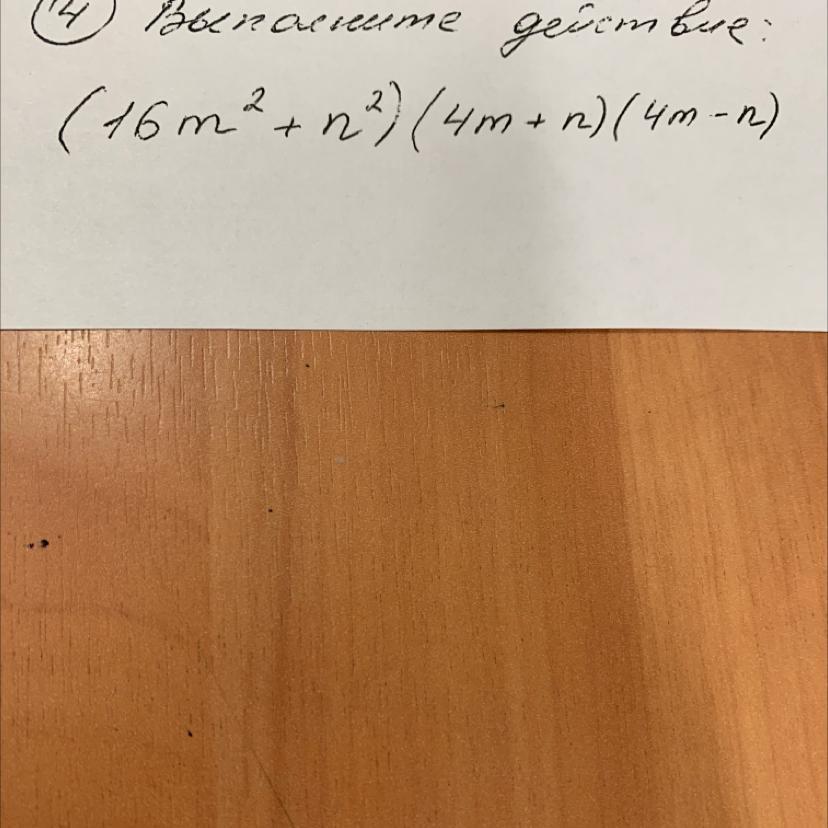 ④ Выполните действие:
(16m² + n²)(4m + n)(4m - n)